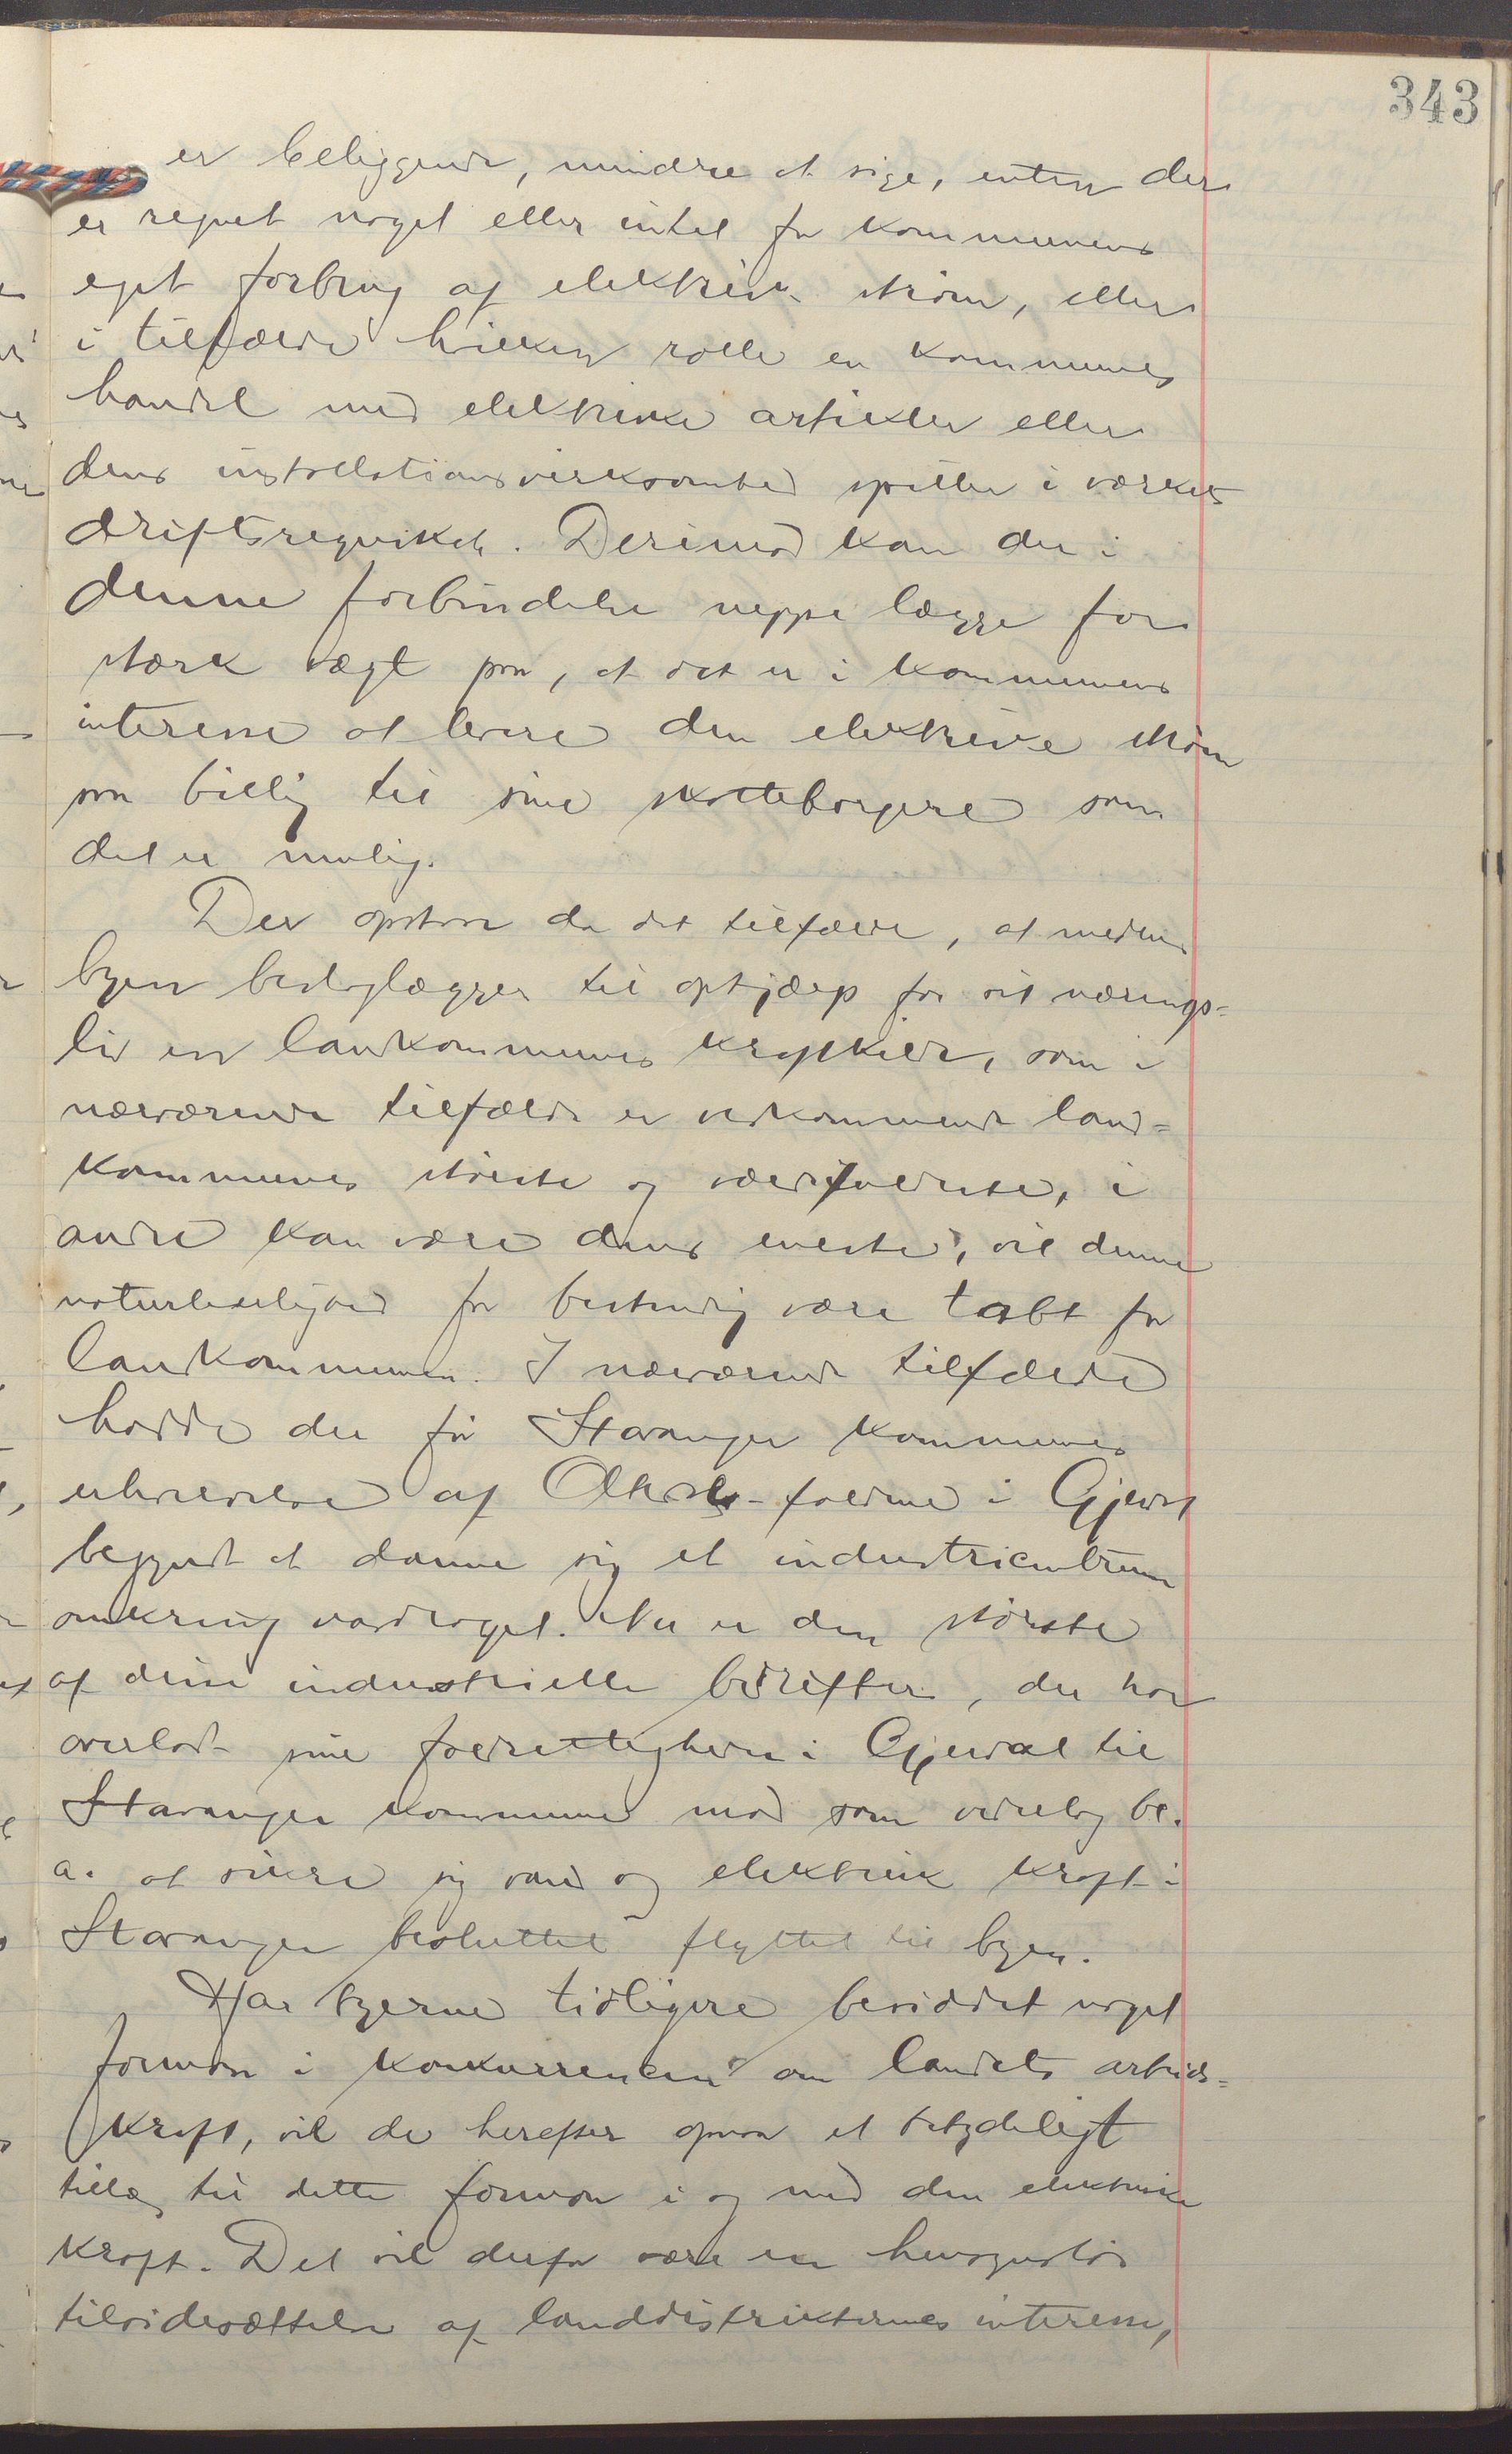 343
er beliggende, mindre at sige, enten der
er regnet noget eller intet for kommunens
eget forbrug af elektrisk strøm, eller
i tilfælde hvilken rolle en kommunes
handel med elektriske artikler eller
dens installationsvirksomhed spiller i værkets
driftsregnskab. Derimod kan der i
denne forbindelse neppe lægges for
stærk vægt paa, at det er i kommunens
interesse at levere den elektriske strøm
saa billig til sine skatteborgere som
det er mulig.
Der opstaar da det tilfælde, at medens
byen beslaglægger til ophjælp for sit nærings-
liv en landkommunes kraftkilde, som i
nærværende tilfælde er vedkommende land-
kommunes største og værdifuldeste, i
andre kan være dens eneste, vil denne
naturherlighed for bestandig være tabt for
landkommunen. I nærværende tilfælde
havde der før Stavanger kommunes
erhvervelse af Oltesvik-faldene i Gjesdal
begyndt at danne sig et industricentrum
omkring vasdraget. Nu er den største
af disse industrielle bedrifter, der har
overladt sine faldrettigheder i Gjesdal til
Stavanger kommune mod som vederlag bl.
a. at sikre sig vand og elektrisk kraft i
Stavanger besluttet flyttet til byen.
Har byerne tidligere besiddet noget
formon i konkurrencen om landets arbeids-
kraft, vil de herefter opnaa et betydeligt
tillæg til dette formon i og med den elektriske
kraft. Det vil derfor være en hensynsløs
tilsidesættelse af landdistrikternes interesse,